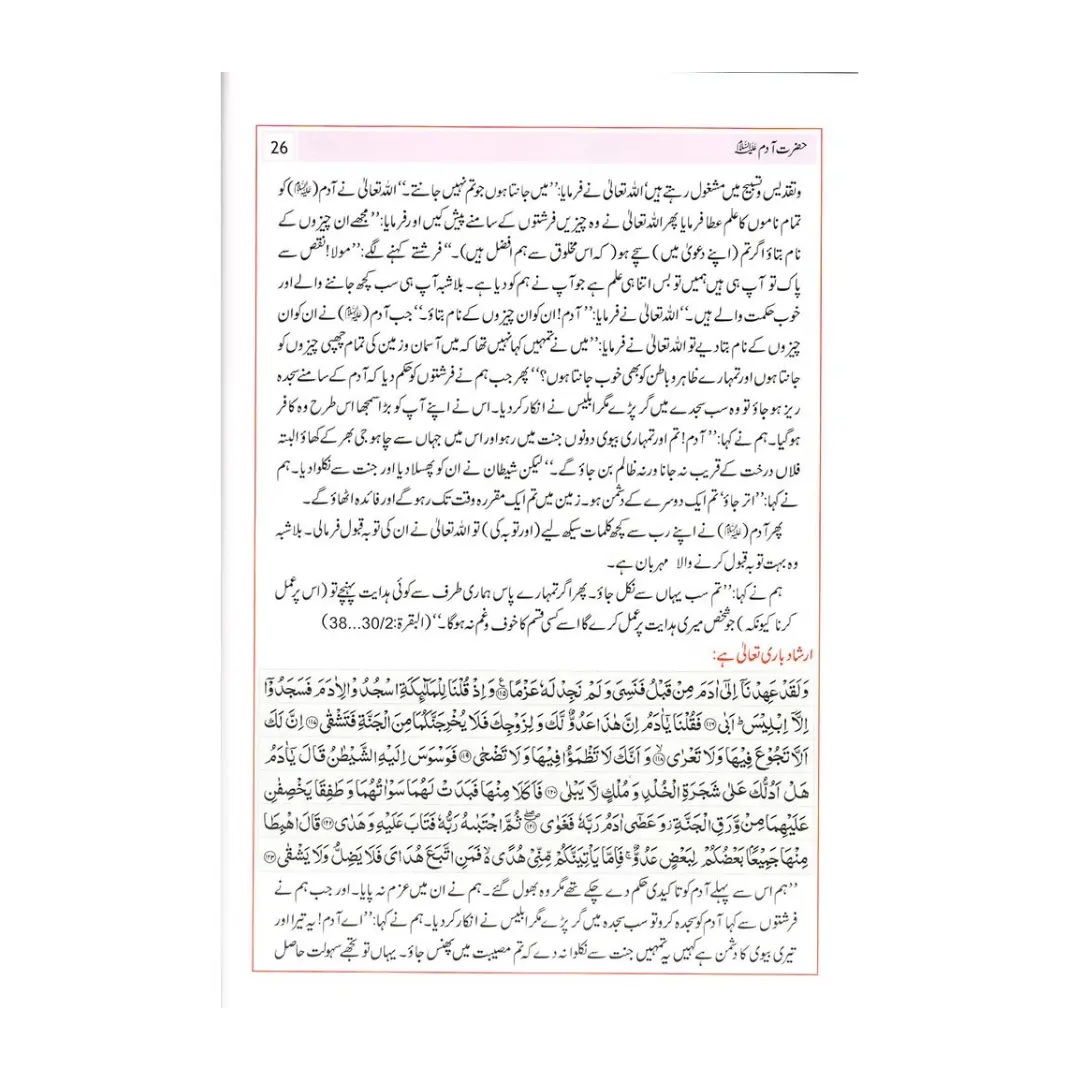 حضرت آدم علیہ السلام
26
وتقدیس وتسبیح میں مشغول رہتے ہیں‘ اللہ تعالیٰ نے فرمایا: ’’میں جانتا ہوں جو تم نہیں جانتے۔‘‘ اللہ تعالیٰ نے آدم (علیہ السلام) کو
تمام ناموں کا علم عطا فرمایا پھر اللہ تعالیٰ نے وہ چیزیں فرشتوں کے سامنے پیش کیں اور فرمایا: ’’مجھے ان چیزوں کے
نام بتاؤ اگر تم (اپنے دعویٰ میں) سچے ہو (کہ اس مخلوق سے ہم افضل ہیں)۔‘‘ فرشتے کہنے لگے: ’’مولا! نقص سے
پاک تو آپ ہی ہیں ہمیں تو بس اتنا ہی علم ہے جو آپ نے ہم کو دیا ہے۔ بلاشبہ آپ ہی سب کچھ جاننے والے اور
خوب حکمت والے ہیں۔‘‘ اللہ تعالیٰ نے فرمایا: ’’آدم! ان کو ان چیزوں کے نام بتاؤ۔‘‘ جب آدم (علیہ السلام) نے ان کو ان
چیزوں کے نام بتا دیے تو اللہ تعالیٰ نے فرمایا: ’’میں نے تمہیں کہا نہیں تھا کہ میں آسمان وزمین کی تمام چھپی چیزوں کو
جانتا ہوں اور تمہارے ظاہر و باطن کو بھی خوب جانتا ہوں؟‘‘ پھر جب ہم نے فرشتوں کو حکم دیا کہ آدم کے سامنے سجدہ
ریز ہو جاؤ تو وہ سب سجدے میں گر پڑے مگر ابلیس نے انکار کر دیا۔ اس نے اپنے آپ کو بڑا سمجھا اس طرح وہ کافر
ہو گیا۔ ہم نے کہا: ’’آدم! تم اور تمہاری بیوی دونوں جنت میں رہو اور اس میں جہاں سے چاہو جی بھر کے کھاؤ البتہ
فلاں درخت کے قریب نہ جانا ورنہ ظالم بن جاؤ گے۔‘‘ لیکن شیطان نے ان کو پھسلا دیا اور جنت سے نکلوا دیا۔ ہم
نے کہا: ’’اتر جاؤ‘ تم ایک دوسرے کے دشمن ہو۔ زمین میں تم ایک مقررہ وقت تک رہو گے اور فائدہ اٹھاؤ گے۔
پھر آدم (علیہ السلام) نے اپنے رب سے کچھ کلمات سیکھ لیے (اور توبہ کی) تو اللہ تعالیٰ نے ان کی توبہ قبول فرمالی۔ بلاشبہ
وہ بہت توبہ قبول کرنے والا مہربان ہے۔
ہم نے کہا: ’’تم سب یہاں سے نکل جاؤ۔ پھر اگر تمہارے پاس ہماری طرف سے کوئی ہدایت پہنچے تو (اس پر عمل
کرنا کیونکہ) جو شخص میری ہدایت پر عمل کرے گا اسے کسی قسم کا خوف وغم نہ ہوگا۔‘‘ (البقرة:30/2...38)
ارشاد باری تعالیٰ ہے:
وَلَقَدْ عَهِدْنَآ اِلٰٓى اٰدَمَ مِنْ قَبْلُ فَنَسِيَ وَلَمْ نَجِدْ لَهٗ عَزْمًا ۝۱۱۵ وَاِذْ قُلْنَا لِلْمَلٰٓئِكَةِ اسْجُدُوْا لِاٰدَمَ فَسَجَدُوْٓا
اِلَّآ اِبْلِيْسَ ؕ اَبٰى ۝۱۱۶ فَقُلْنَا يٰٓاٰدَمُ اِنَّ هٰذَا عَدُوٌّ لَّكَ وَلِزَوْجِكَ فَلَا يُخْرِجَنَّكُمَا مِنَ الْجَنَّةِ فَتَشْقٰى ۝۱۱۷ اِنَّ لَكَ
اَلَّا تَجُوْعَ فِيْهَا وَلَا تَعْرٰى ۝۱۱۸ وَاَنَّكَ لَا تَظْمَؤُا فِيْهَا وَلَا تَضْحٰى ۝۱۱۹ فَوَسْوَسَ اِلَيْهِ الشَّيْطٰنُ قَالَ يٰٓاٰدَمُ
هَلْ اَدُلُّكَ عَلٰى شَجَرَةِ الْخُلْدِ وَمُلْكٍ لَّا يَبْلٰى ۝۱۲۰ فَاَكَلَا مِنْهَا فَبَدَتْ لَهُمَا سَوْاٰتُهُمَا وَطَفِقَا يَخْصِفٰنِ
عَلَيْهِمَا مِنْ وَّرَقِ الْجَنَّةِ ؗ وَعَصٰٓى اٰدَمُ رَبَّهٗ فَغَوٰى ۝۱۲۱ ثُمَّ اجْتَبٰىهُ رَبُّهٗ فَتَابَ عَلَيْهِ وَهَدٰى ۝۱۲۲ قَالَ اهْبِطَا
مِنْهَا جَمِيْعًۢا بَعْضُكُمْ لِبَعْضٍ عَدُوٌّ ۚ فَاِمَّا يَاْتِيَنَّكُمْ مِّنِّيْ هُدًى ۙ فَمَنِ اتَّبَعَ هُدَايَ فَلَا يَضِلُّ وَلَا يَشْقٰى ۝۱۲۳
’’ہم اس سے پہلے آدم کو تاکیدی حکم دے چکے تھے مگر وہ بھول گئے۔ ہم نے ان میں عزم نہ پایا۔ اور جب ہم نے
فرشتوں سے کہا آدم کو سجدہ کرو تو سب سجدہ میں گر پڑے مگر ابلیس نے انکار کر دیا۔ ہم نے کہا: ’’اے آدم! یہ تیرا اور
تیری بیوی کا دشمن ہے کہیں یہ تمہیں جنت سے نکلوا نہ دے کہ تم مصیبت میں پھنس جاؤ۔ یہاں تو تجھے سہولت حاصل